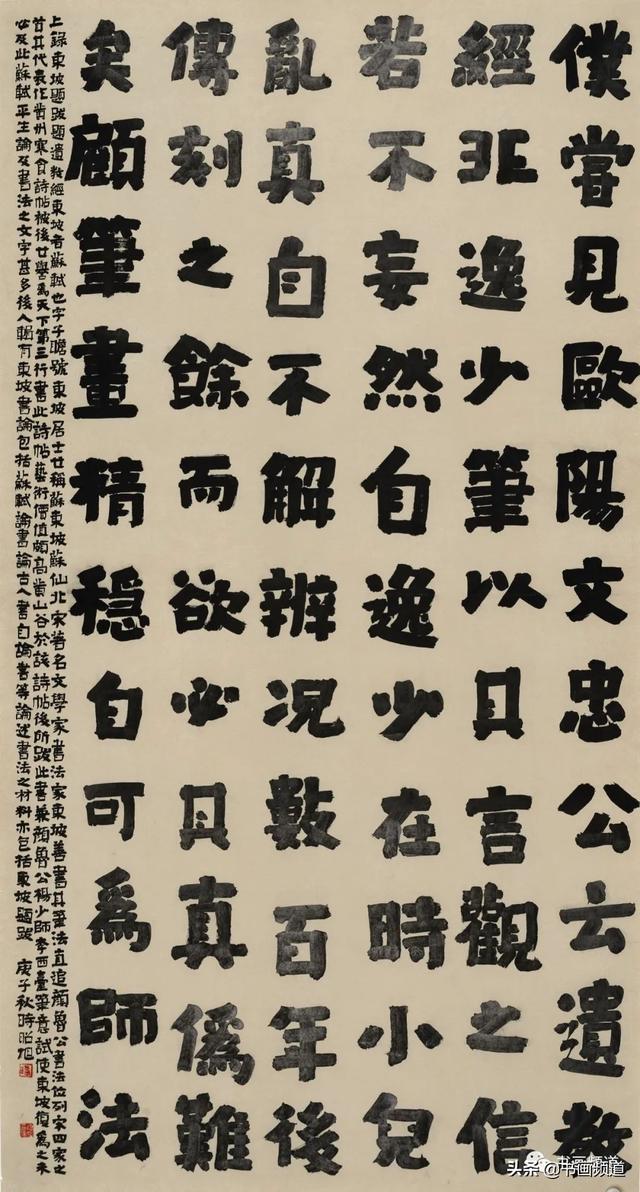 僕嘗見歐陽文忠公云遺教
經非逸少筆以其言觀之信
若不妄然自逸少在時小兒
亂真自不解辨況數百年後
傳刻之餘而欲必其真偽難
矣顧筆畫精穩自可為師法
上錄東坡題跋題遺教經東坡者蘇軾也字子瞻號東坡居士世稱蘇東坡蘇仙北宋著名文學家書法家東坡善書其筆法直追顏魯公書法位列宋四家之
首其代表作黃州寒食詩帖被後世學為天下第三行書此詩帖藝術價值頗高黃山谷於該詩帖後所跋此書兼顏魯公楊少師李西臺筆意試使東坡復為之未
必及此蘇軾平生論及書法之文字甚多後人輯有東坡書論包括蘇軾論書論古人書自論書等論述書法之材料亦包括東坡題跋 庚子秋時昭旭
书画频道
头条@书画频道